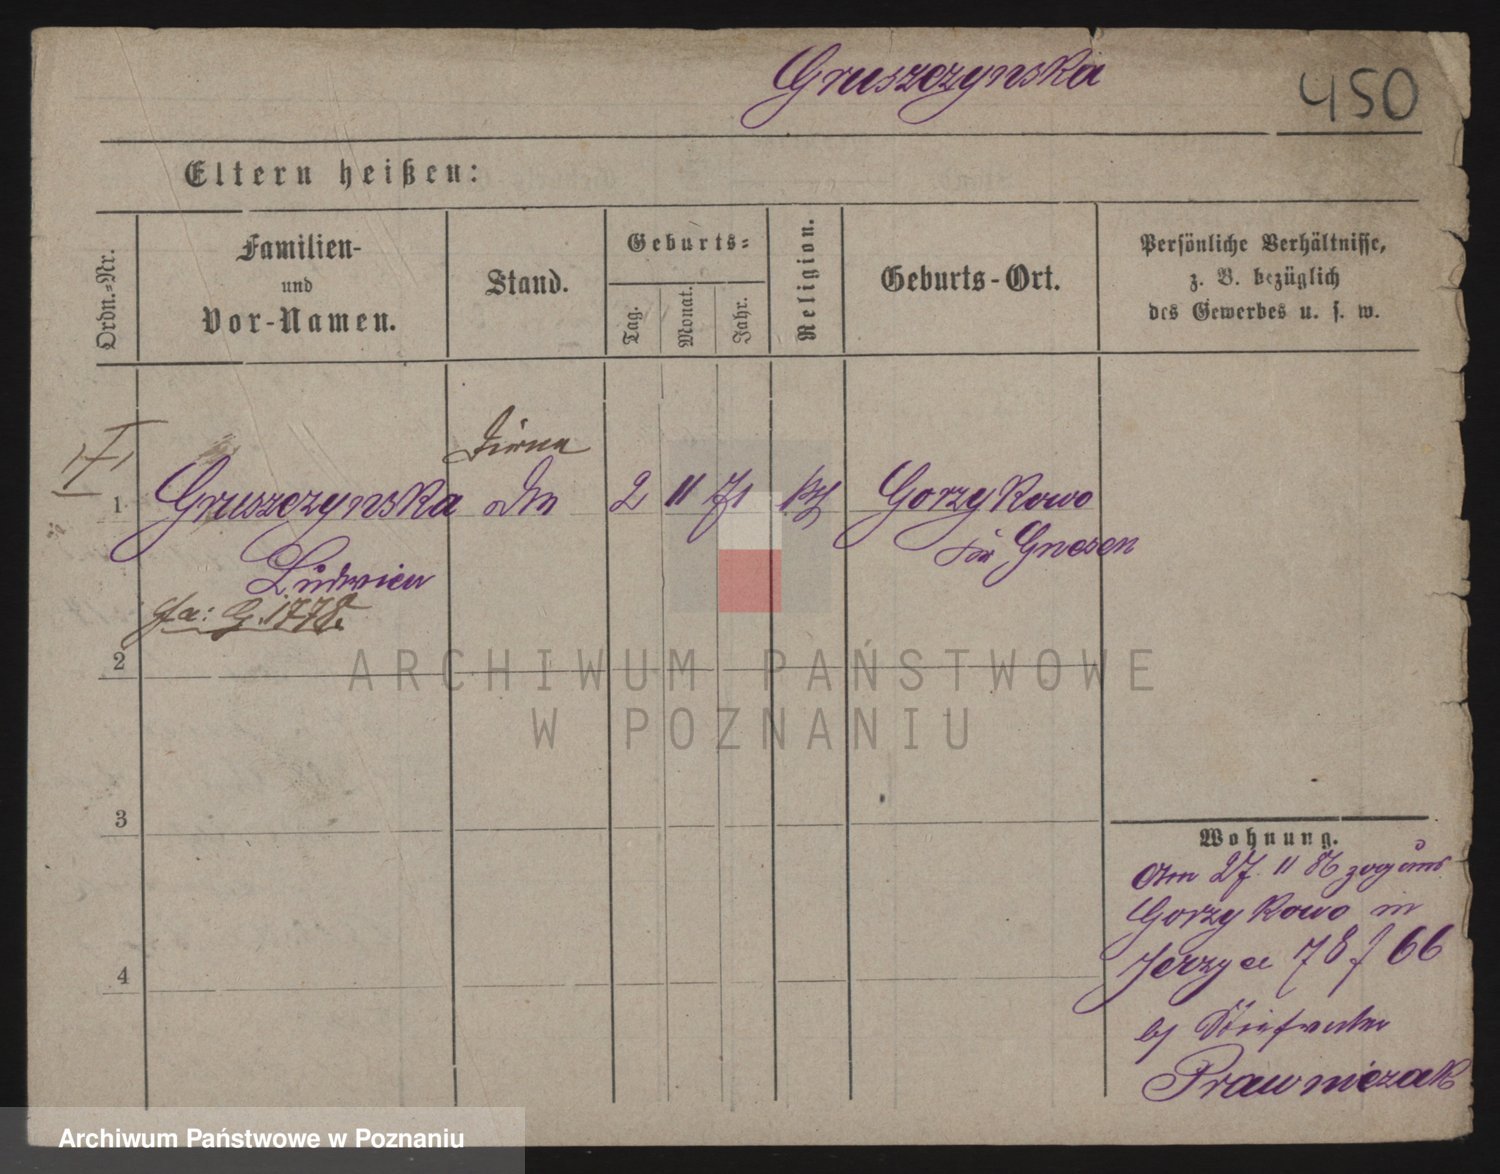 Gruszczynska
450
Eltern heißen:
Ordn.-Nr.
Familien-
und
Vor-Namen.
Stand.
Geburts-
Tag.
Monat.
Jahr.
Religion.
Geburts-Ort.
Persönliche Verhältnisse,
z. B. bezüglich
des Gewerbes u. s. w.
Dirne
1 Gruszczynska 2 11 71 Gorzykowo
Gnesen
Ludwica
G. 1778
2
3
4
Wohnung.
Am 27. 11 86 zog aus
Gorzykowo in
Jerzyce 78 f 66
Prawniczak
ARCHIWUM PAŃSTWOWE
W POZNANIU
Archiwum Państwowe w Poznaniu